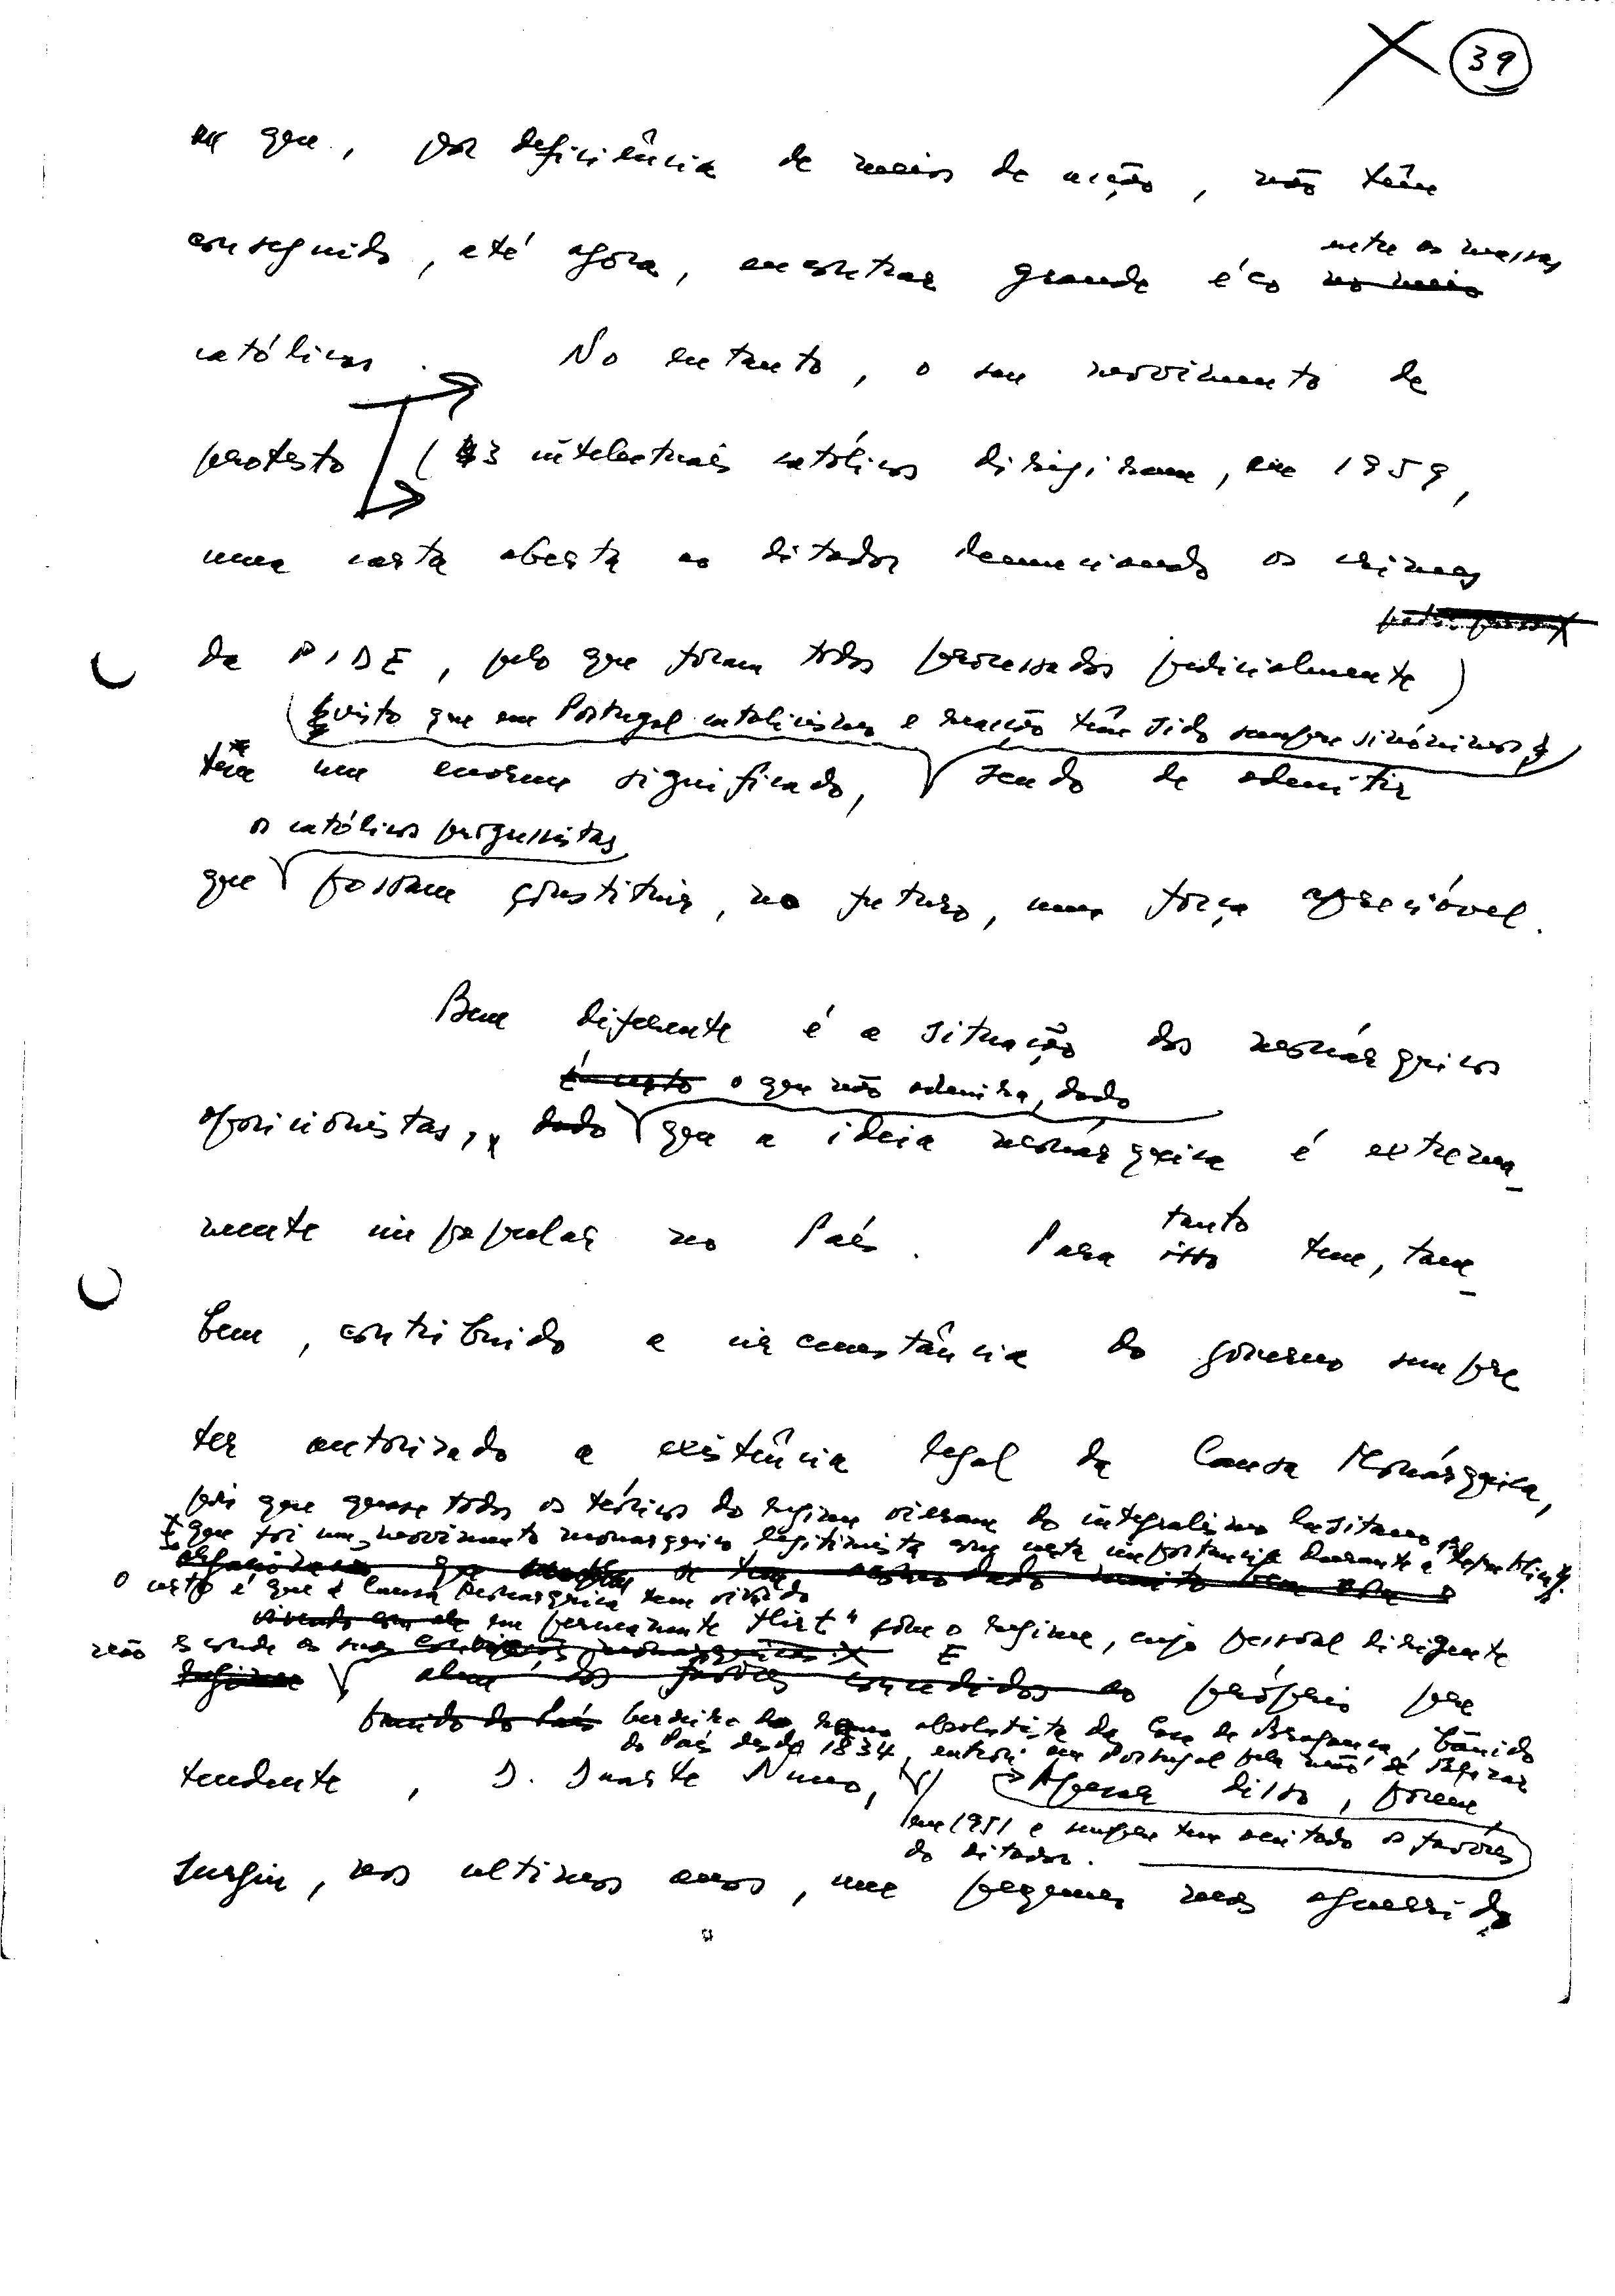 39
que, por deficiência de meios de acção, não têm
entre as massas
conseguido, até agora, encontrar grande éco no meio
católicas. No entanto, o seu movimento de
protesto (43 intelectuais católicos dirigiram, em 1959,
uma carta aberta ao ditador denunciando os crimes
da PIDE, pelo que foram todos processados judicialmente)
visto que em Portugal catolicismo e reacção têm sido sempre sinónimos
tem um enorme significado, sendo de admitir
os católicos progressistas
que possam constituir, no futuro, uma força apreciável.
Bem diferente é a situação dos monárquicos
é certo o que não admira, dado
oposicionistas, dado que a ideia monárquica é extrema_
mente impopular no País. Para isso tem, tam_
tanto
bem, contribuido a circunstância do governo sempre
ter autorizado a existência legal da Causa Monárquica,
pois que quase todos os teóricos do regime vieram do integralismo lusitano
que foi um movimento monarquico legitimista com certa importancia durante a Republica.
O certo é que a Causa Monarquica tem vivido
em permanente "flirt" com o regime, cujo pessoal dirigente
não esconde as suas
E
além dos favores concedidos ao próprio pre
banido do País herdeiro do ramo absolutista da Casa de Bragança, bânido
do País desde 1834, entrou em Portugal pela mão de Salazar
tendente, D. Duarte Nuno, Apesar disso, porem
em 1951 e sempre tem aceitado os favores
do ditador.
surgiu, nos ultimos anos, um pequeno mas aguerrido